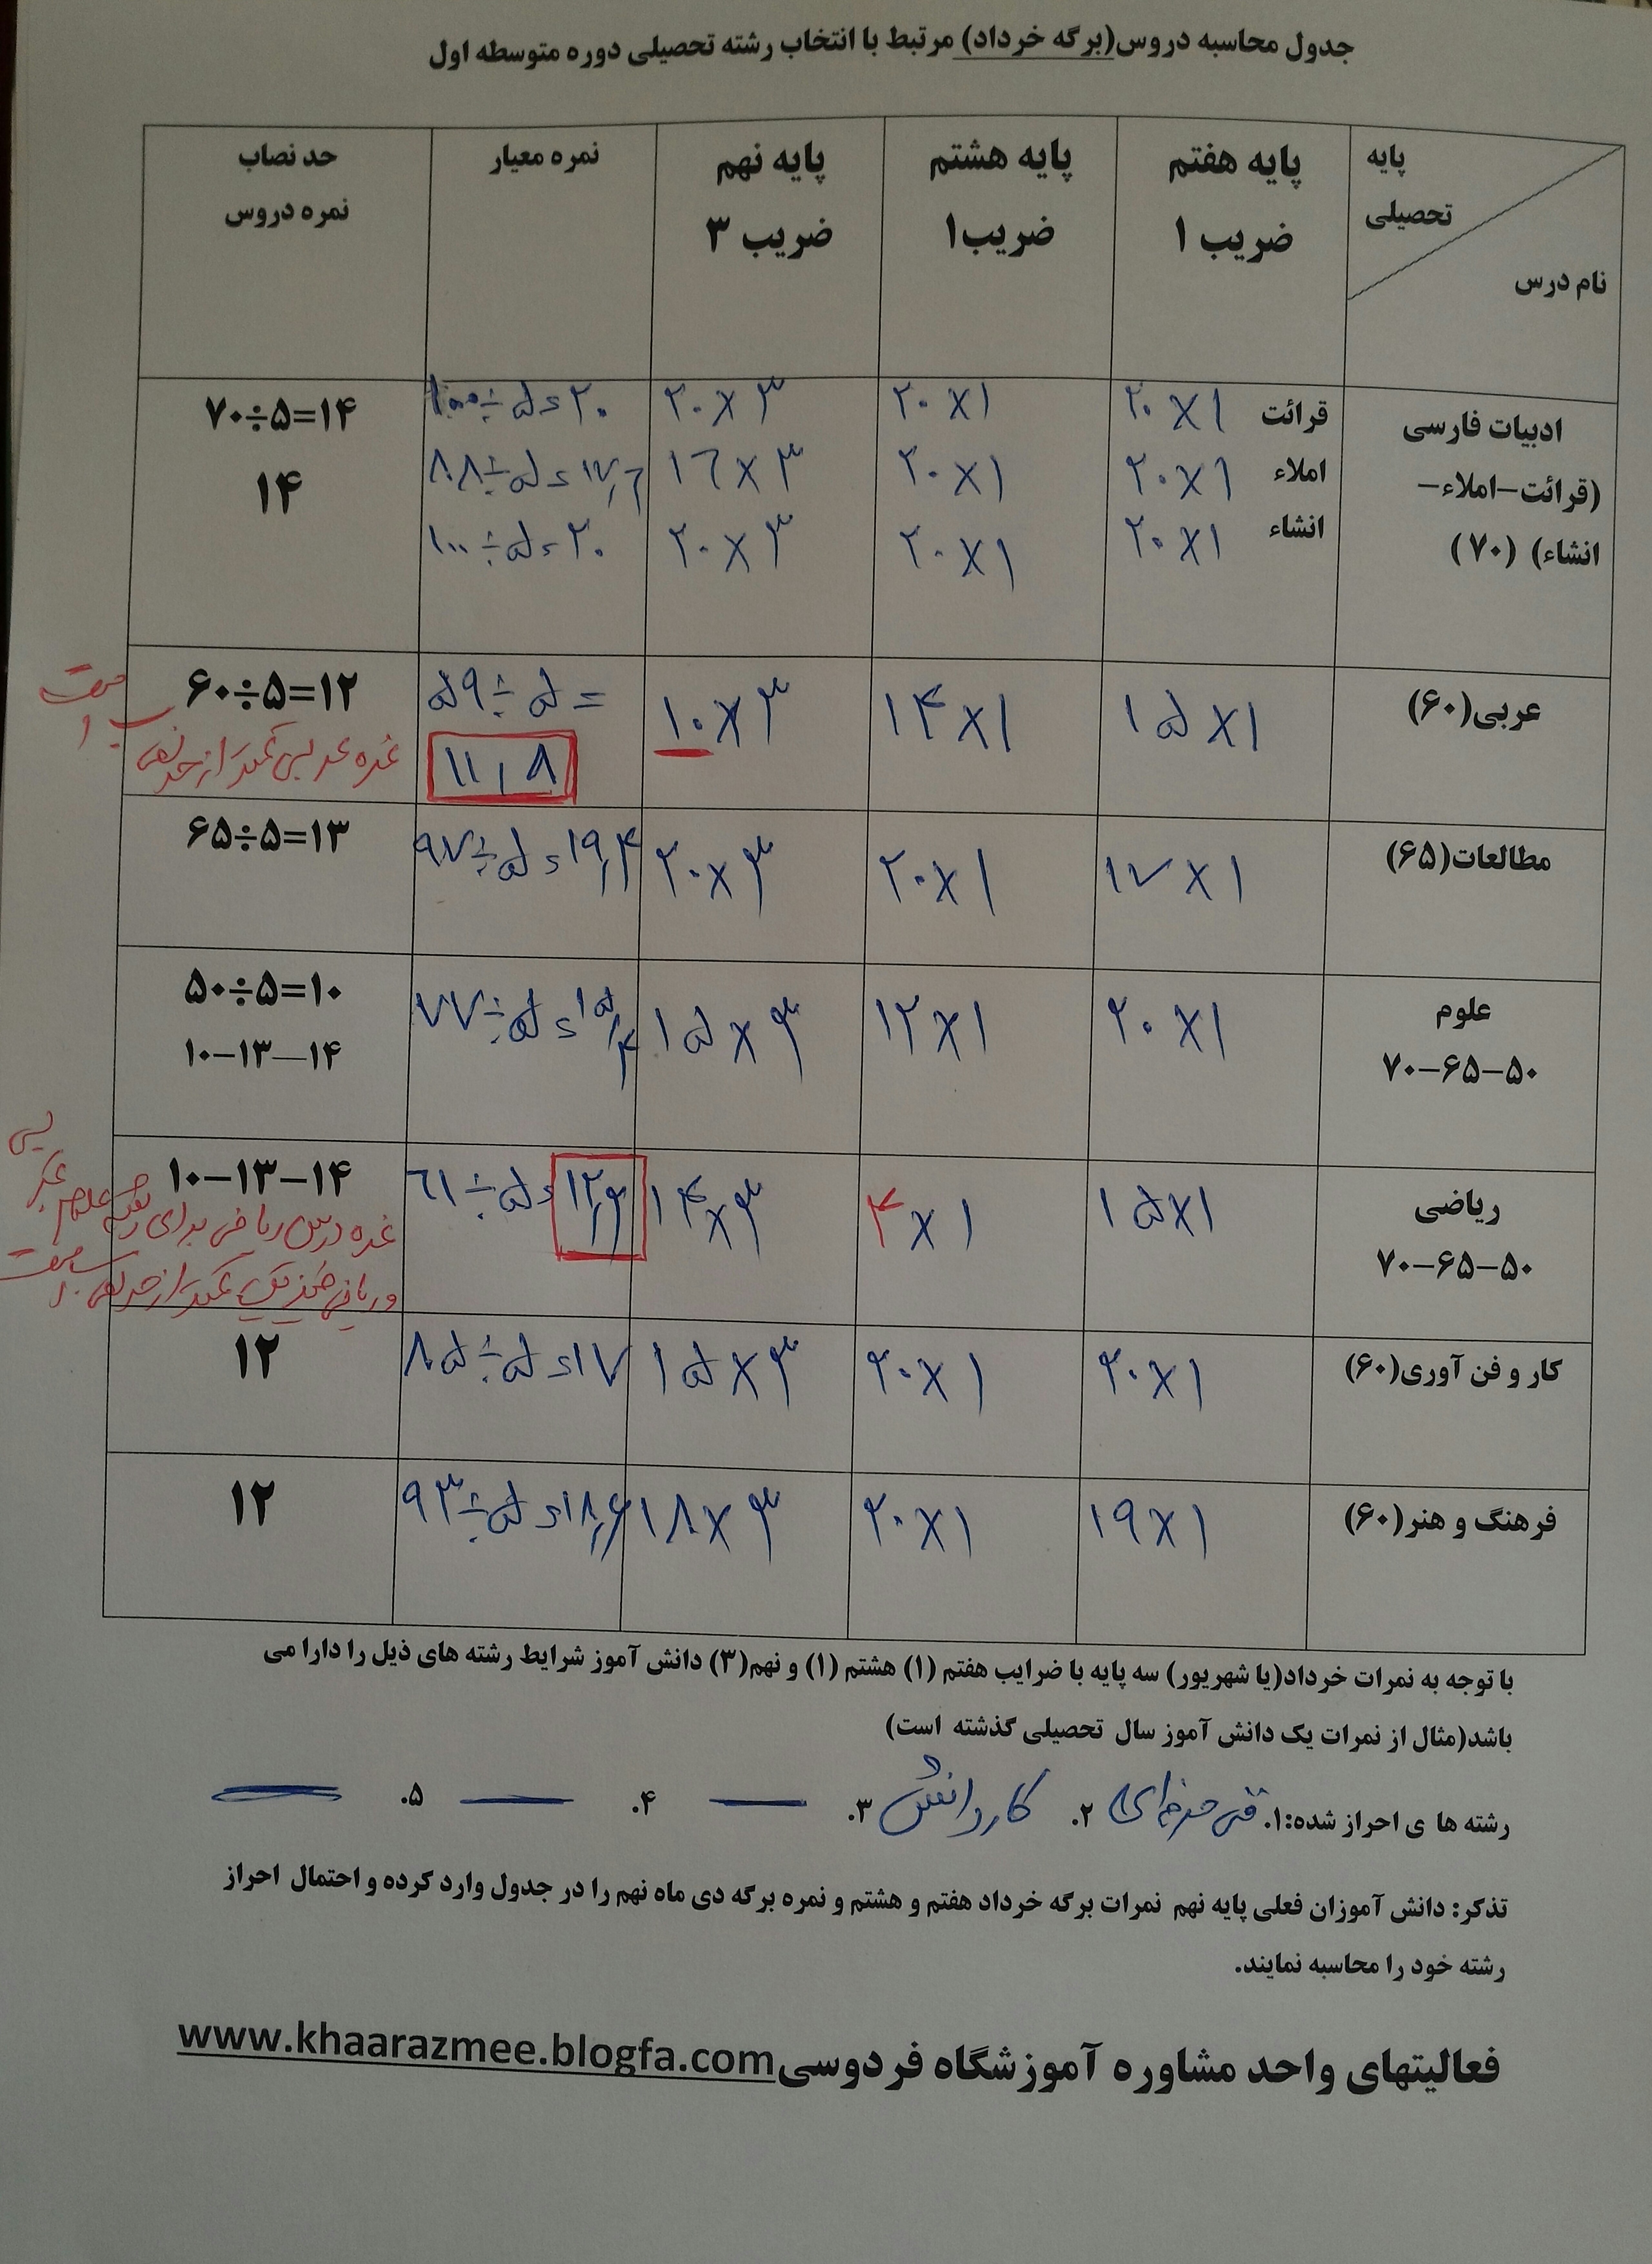 جدول محاسبه دروس(برگه خرداد) مرتبط با انتخاب رشته تحصیلی دوره متوسطه اول
پایه تحصیلی نام درس
پایه هفتم ضریب ۱
پایه هشتم ضریب۱
پایه نهم ضریب ۳
نمره معیار
حد نصاب نمره دروس
ادبیات فارسی (قرائت-املاء-انشاء) (۷۰)
قرائت ۲۰×۱ ۲۰×۱ ۲۰×۳ ۱۰۰÷۵=۲۰ ۷۰÷۵=۱۴
املاء ۲۰×۱ ۲۰×۱ ۱۶×۳ ۸۸÷۵=۱۷,۶ ۱۴
انشاء ۲۰×۱ ۲۰×۱ ۲۰×۳ ۱۰۰÷۵=۲۰
عربی(۶۰) ۱۵×۱ ۱۴×۱ ۱۰×۳ ۵۹÷۵= ۶۰÷۵=۱۲
۱۱,۸ نمره عربی کمتر از حد نصاب است
مطالعات(۶۵) ۱۷×۱ ۲۰×۱ ۲۰×۳ ۹۷÷۵=۱۹,۴ ۶۵÷۵=۱۳
علوم ۲۰×۱ ۱۲×۱ ۱۵×۳ ۷۷÷۵=۱۵,۴ ۵۰÷۵=۱۰
۷۰-۶۵-۵۰ ۱۰-۱۳-۱۴
ریاضی ۱۵×۱ ۴×۱ ۱۴×۳ ۶۱÷۵=۱۲,۲ ۱۰-۱۳-۱۴
۷۰-۶۵-۵۰ نمره درس ریاضی برای رشته علوم تجربی
و ریاضی فیزیک کمتر از حد نصاب است
کار و فن آوری(۶۰) ۲۰×۱ ۲۰×۱ ۱۵×۳ ۸۵÷۵=۱۷ ۱۲
فرهنگ و هنر(۶۰) ۱۹×۱ ۲۰×۱ ۱۸×۳ ۹۳÷۵=۱۸,۶ ۱۲
با توجه به نمرات خرداد(یا شهریور) سه پایه با ضرایب هفتم (۱) هشتم (۱) و نهم(۳) دانش آموز شرایط رشته های ذیل را دارا می
باشد(مثال از نمرات یک دانش آموز سال تحصیلی گذشته است)
رشته ها ی احراز شده:۱. فنی حرفه‌ای ۲. کار و دانش ۳. — ۴. — ۵. —
تذکر: دانش آموزان فعلی پایه نهم نمرات برگه خرداد هفتم و هشتم و نمره برگه دی ماه نهم را در جدول وارد کرده و احتمال احراز
رشته خود را محاسبه نمایند.
فعالیتهای واحد مشاوره آموزشگاه فردوسیwww.khaarazmee.blogfa.com